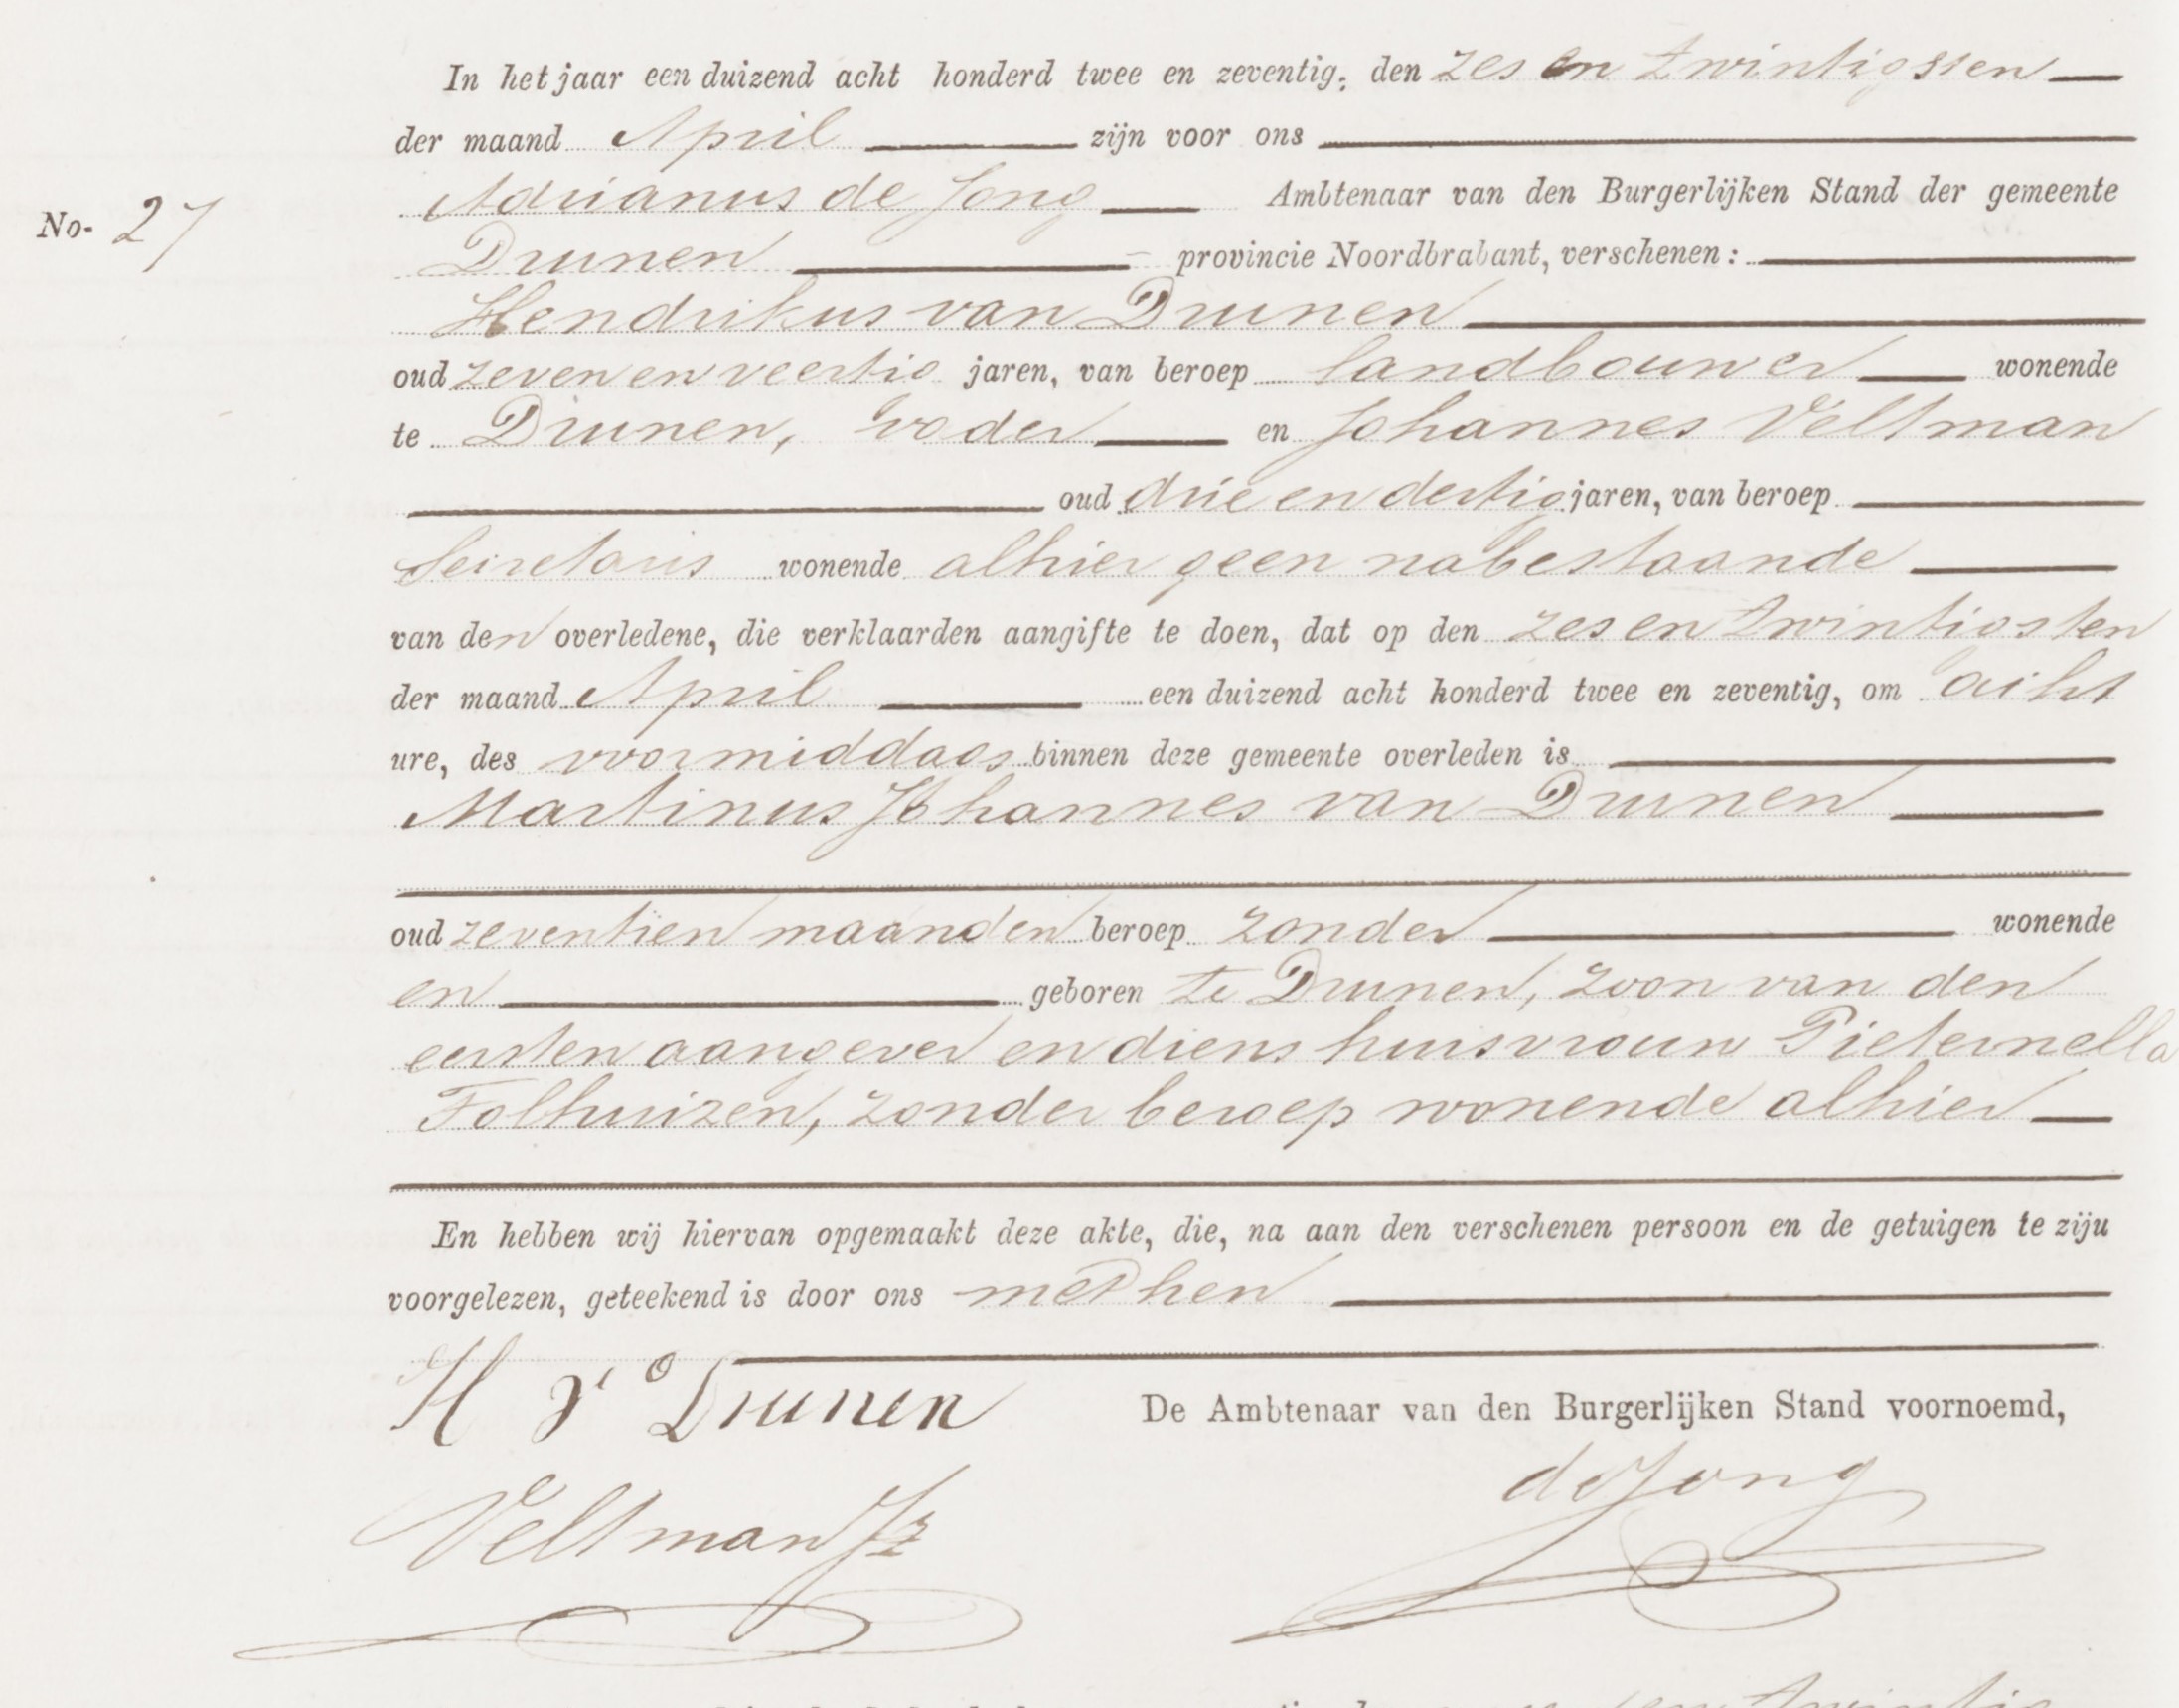 In het jaar een duizend acht honderd twee en zeventig, den zes en twintigsten
der maand April zijn voor ons
Adrianus de Jong Ambtenaar van den Burgerlijken Stand der gemeente
No. 27
Drunen provincie Noordbrabant, verschenen:
Hendrikus van Drunen
oud zeven en veertig jaren, van beroep landbouwer wonende
te Drunen, vader en Johannes Veltman
oud drie en dertig jaren, van beroep
Secretaris wonende alhier geen nabestaande
van den overledene, die verklaarden aangifte te doen, dat op den zes en twintigsten
der maand April een duizend acht honderd twee en zeventig, om acht
ure, des voormiddags binnen deze gemeente overleden is
Martinus Johannes van Drunen
oud zeventien maanden beroep zonder wonende
en geboren te Drunen, zoon van den
eersten aangever en diens huisvrouw Pieternella
Folhuizen, zonder beroep wonende alhier
En hebben wij hiervan opgemaakt deze akte, die, na aan den verschenen persoon en de getuigen te ziju
voorgelezen, geteekend is door ons met hen
H v Drunen De Ambtenaar van den Burgerlijken Stand voornoemd,
de Jong
Veltman Jz